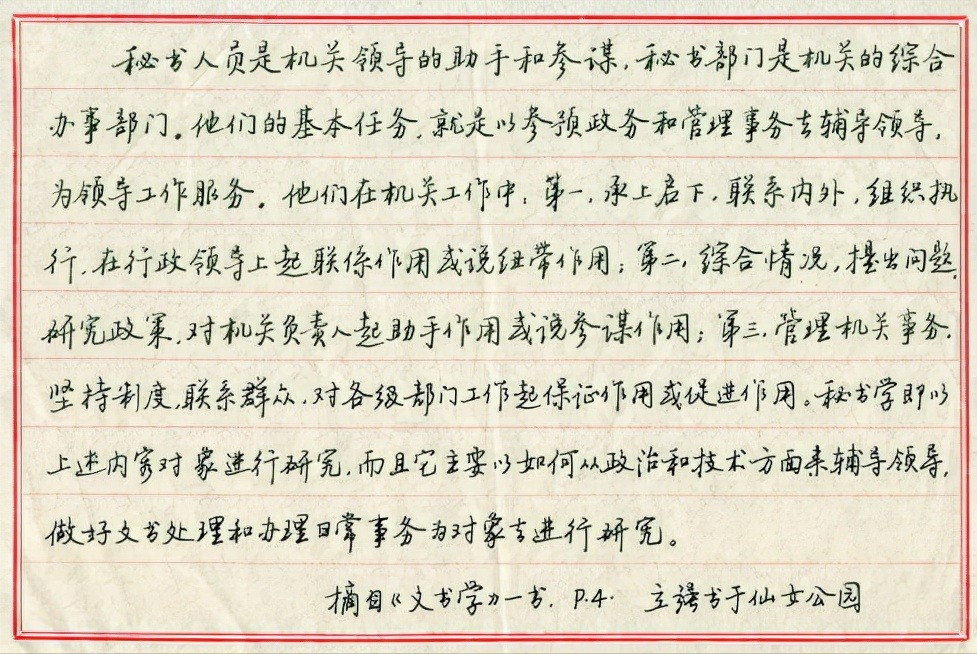 秘书人员是机关领导的助手和参谋，秘书部门是机关的综合
办事部门。他们的基本任务，就是以参预政务和管理事务去辅导领导，
为领导工作服务。他们在机关工作中：第一，承上启下，联系内外，组织执
行，在行政领导上起联系作用或说纽带作用；第二，综合情况，提出问题，
研究政策，对机关负责人起助手作用或说参谋作用；第三，管理机关事务，
坚持制度，联系群众，对各级部门工作起保证作用或促进作用。秘书学即以
上述内容对象进行研究，而且它主要以如何从政治和技术方面来辅导领导，
做好文书处理和办理日常事务为对象去进行研究。
摘自《文书学》一书，P.4. 立强书于仙女公园